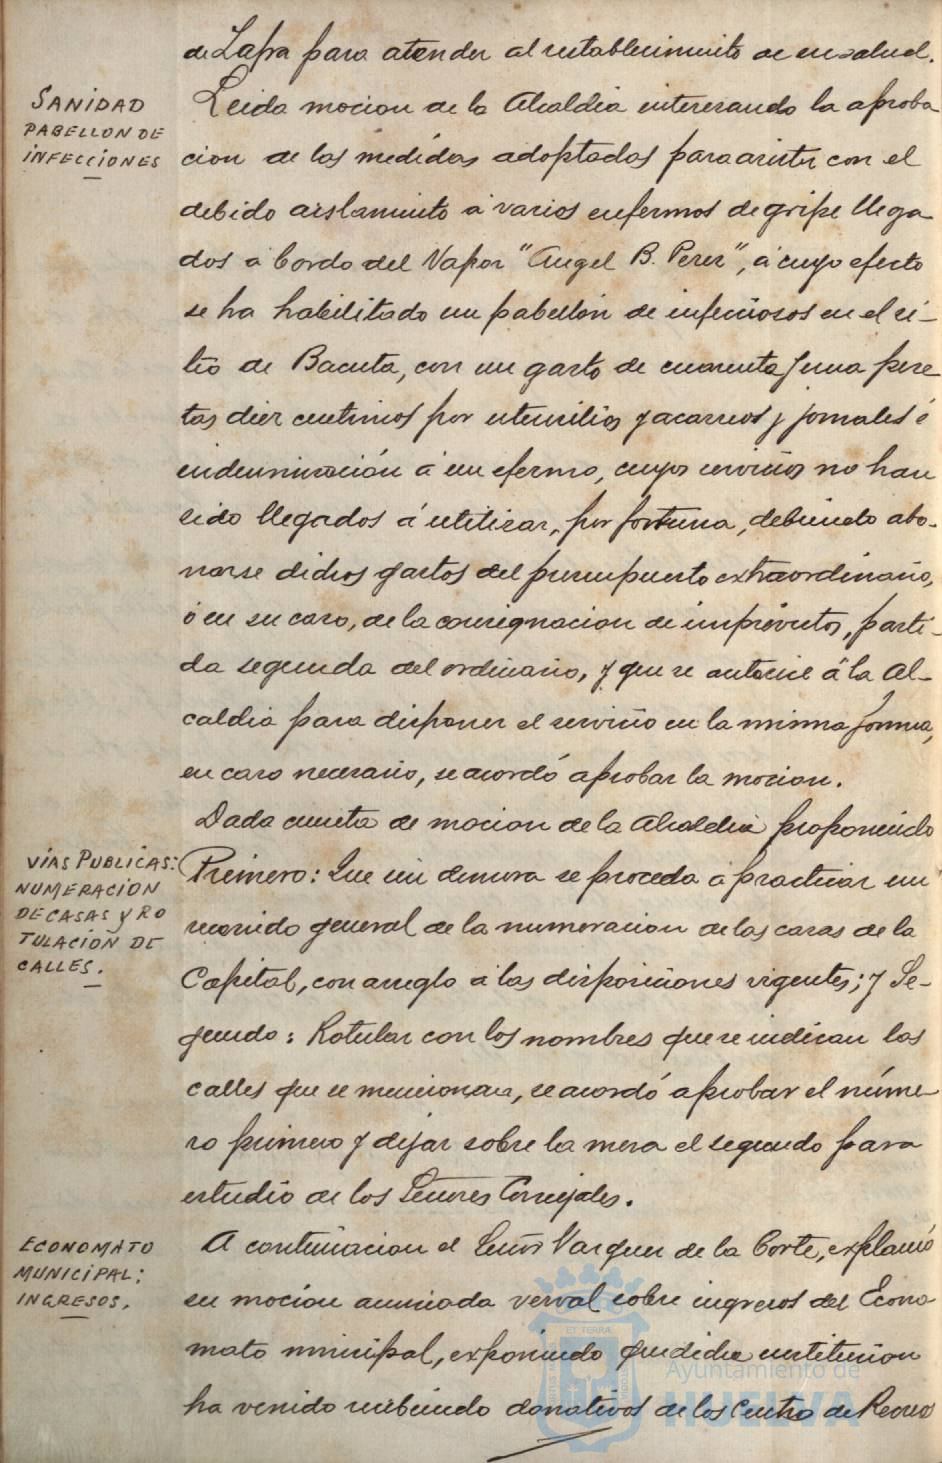 de Lapa para atender al restablecimiento de su salud.
SANIDAD
PABELLON DE
INFECCIONES
Leida mocion de la Alcaldia interesando la aproba
cion de las medidas adoptadas para asistir con el
debido aislamiento á varios enfermos de gripe llega
dos á bordo del Vapor "Angel B. Perez", á cuyo efecto
se ha habilitado un pabellón de infecciosos en el si-
tio de Bacuta, con un gasto de cuarenta y una pese
tas diez centimos por utensilios y acarreos y jornales é
indemnización á un efermo, cuyos servicios no han
sido llegados á utilizar, por fortuna, debiendo abo-
narse dichos gastos del presupuesto extraordinario,
ó en su caso, de la consignacion de imprevistos, parti-
da segunda del ordinario, y que se autorice á la Al-
caldia para disponer el servicio en la misma forma,
en caso necesario, se acordó aprobar la mocion.
Dada cuenta de mocion de la Alcaldia proponiendo
VIAS PUBLICAS:
NUMERACION
DE CASAS Y RO
TULACION DE
CALLES.
Primero: Que sin demora se proceda á practicar un
recorrido general de la numeracion de las casas de la
Capital, con arreglo á las disposiciones vigentes; y Se-
gundo: Rotular con los nombres que se indican las
calles que se mencionan, se acordó aprobar el núme-
ro primero y dejar sobre la mesa el segundo para
estudio de los Señores Concejales.
ECONOMATO
MUNICIPAL:
INGRESOS.
A continuacion el Señor Vazquez de la Corte, explanó
su mocion anunciada verval sobre ingresos del Econo
mato municipal, exponiendo que dicha institucion
ha venido recibiendo donativos de los Centro de Recreos
ET TERRA
Ayuntamiento de
HUELVA